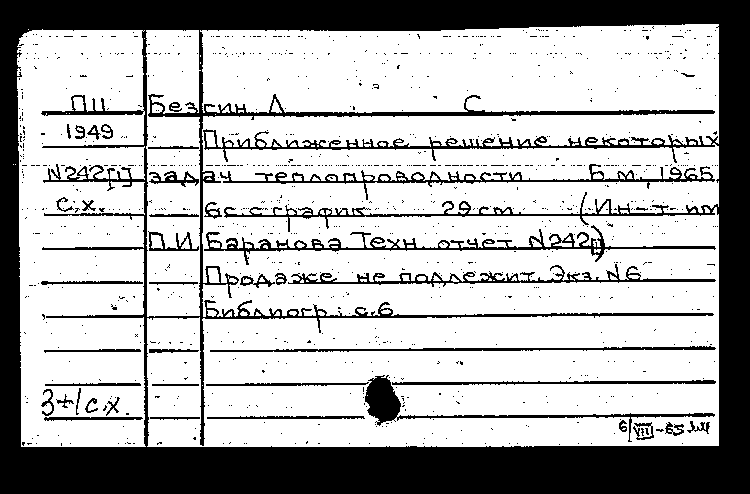 П11 Безсин, Л С
1949 Приближенное решение некоторых
N242[1] задач теплопроводности Б.м., 1965.
с.х. 6с с график 29 см. (Ин-т им
П.И. Баранова Техн. отчет N242[1])
Продаже не подлежит. Экз. N6
Библиогр.: с.6
3+1 с.х.
6/VIII-65